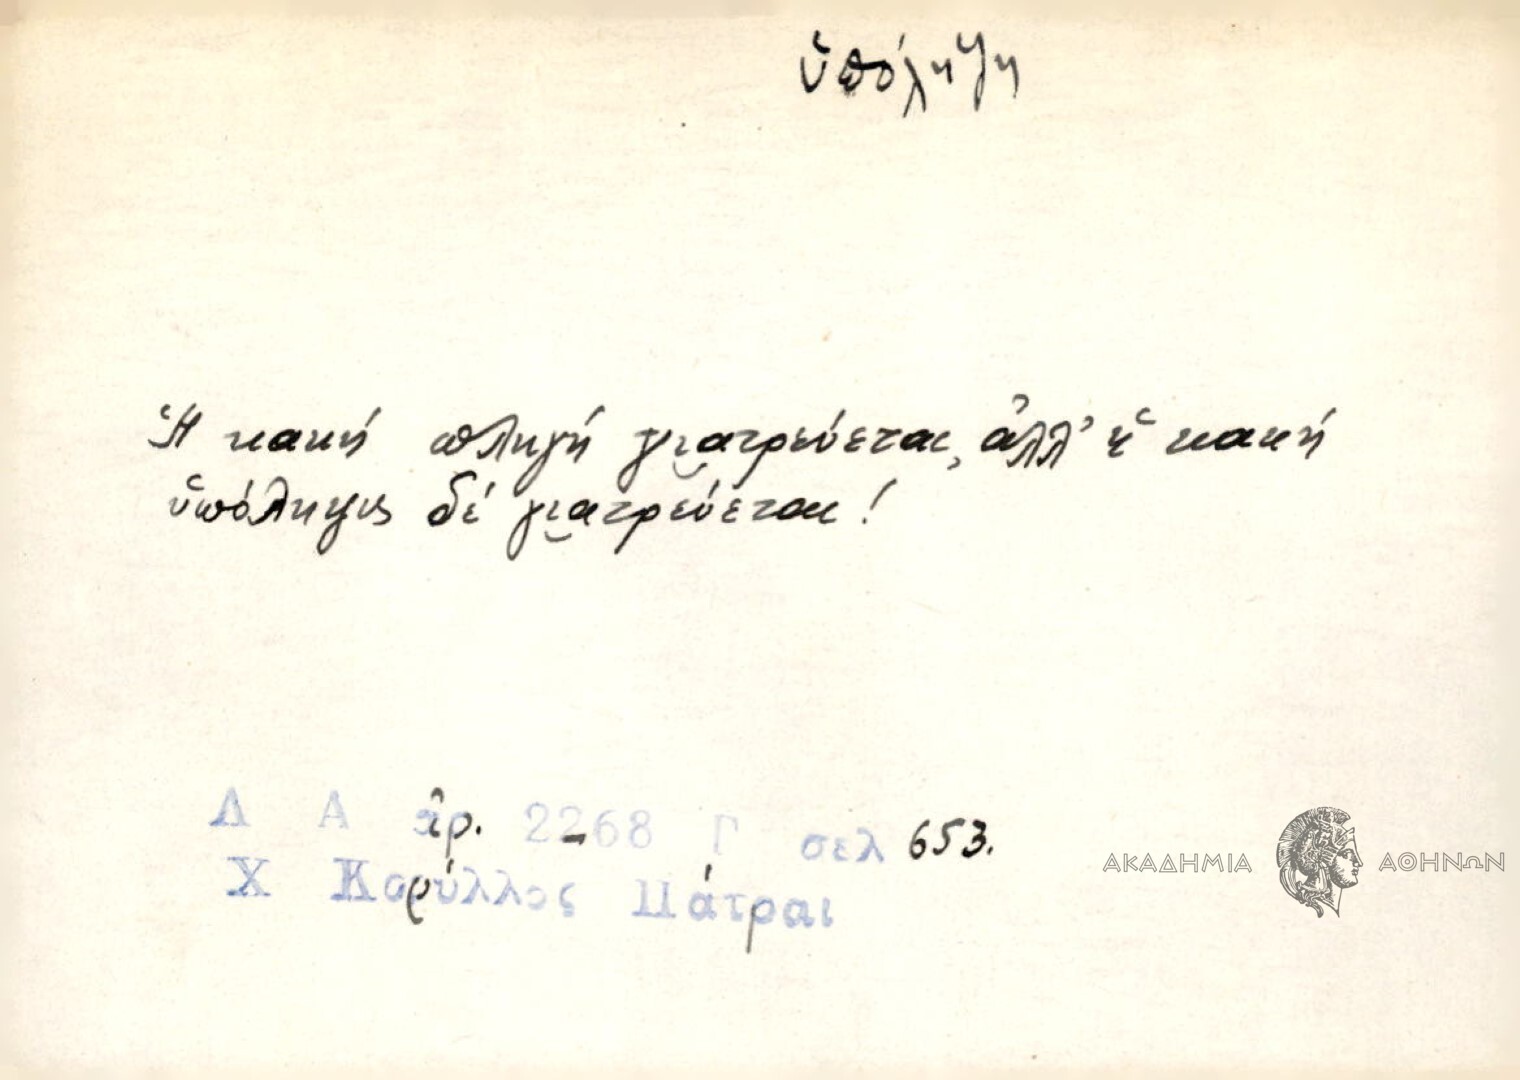 ὑπόληψη
Ἡ κακή πληγή γιατρεύεται, ἀλλ' ἡ κακή
ὑπόληψις δέ γιατρεύεται!
Λ Α ἀρ. 2268 Γ σελ 653.
Χ Κορύλλος Πάτραι
ΑΚΑΔΗΜΙΑ ΑΘΗΝΩΝ